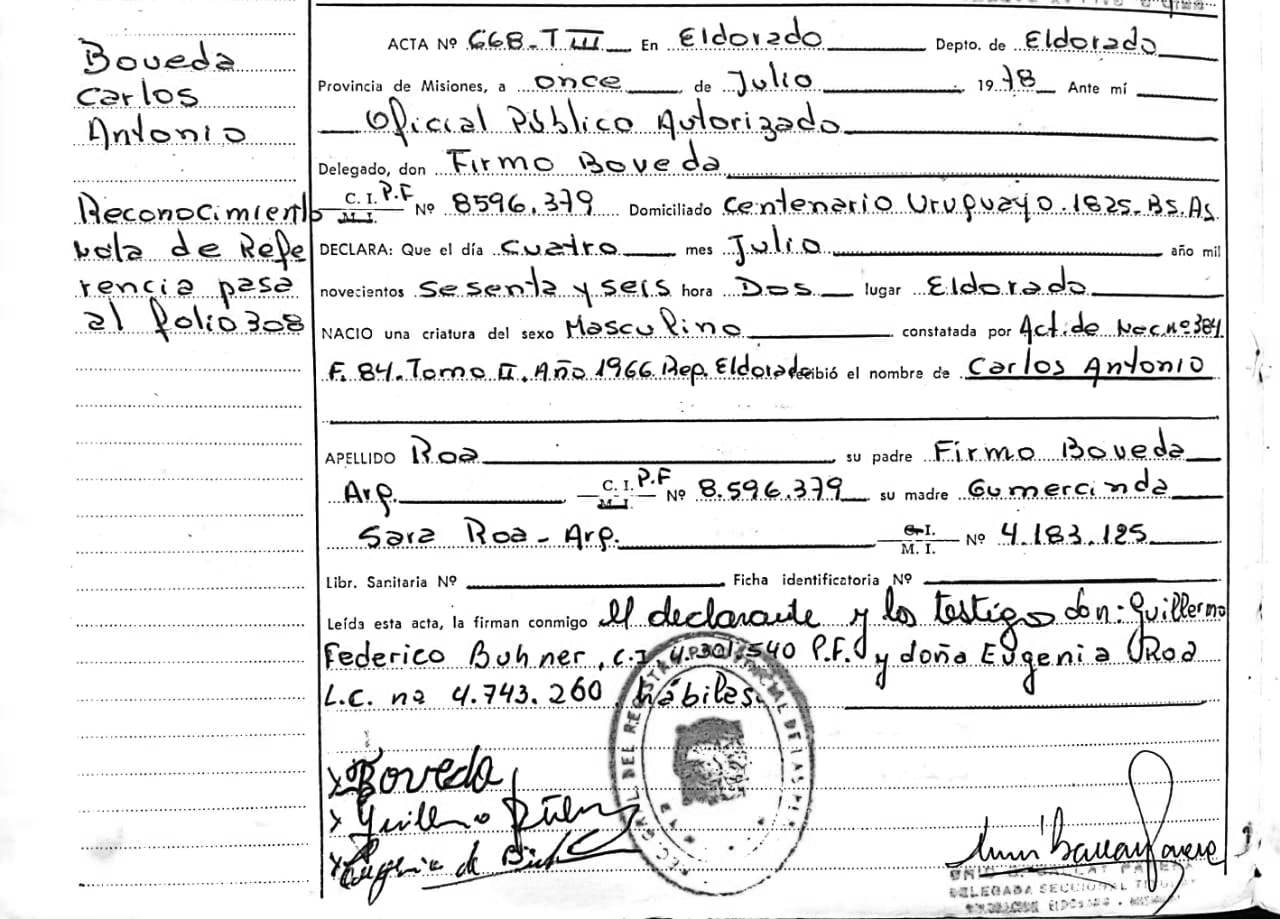 Boveda
Carlos
Antonio
Reconocimiento
Nota de Refe
rencia pasa
al folio 308
ACTA Nº 668-T III En Eldorado Depto. de Eldorado
Provincia de Misiones, a once de Julio 1978 Ante mí
Oficial Público Autorizado
Delegado, don Firmo Boveda
C. I. P.F
M. I. Nº 8596.379 Domiciliado Centenario Uruguayo.1825.Bs.As
DECLARA: Que el día cuatro mes Julio año mil
novecientos sesenta y seis hora Dos lugar Eldorado
NACIO una criatura del sexo Masculino constatada por Act.de Nac.Nº384
F. 84.Tomo II.Año 1966.Dep.Eldorado recibió el nombre de Carlos Antonio
APELLIDO Roa su padre Firmo Boveda
Arg. C. I. P.F M. I. Nº 8.596.379 su madre Gumercinda
Sara Roa - Arg. C. I. M. I. Nº 4.183.125
Libr. Sanitaria Nº Ficha identificatoria Nº
Leída esta acta, la firman conmigo el declarante y los testigos don: Guillermo
Federico Buhner, C.I 4.301.540 P.F. y doña Eugenia Roa
L.C. nº 4.743.260, hábiles.
Boveda
Guillermo
Eugenia de
DELEGADA SECCIONAL